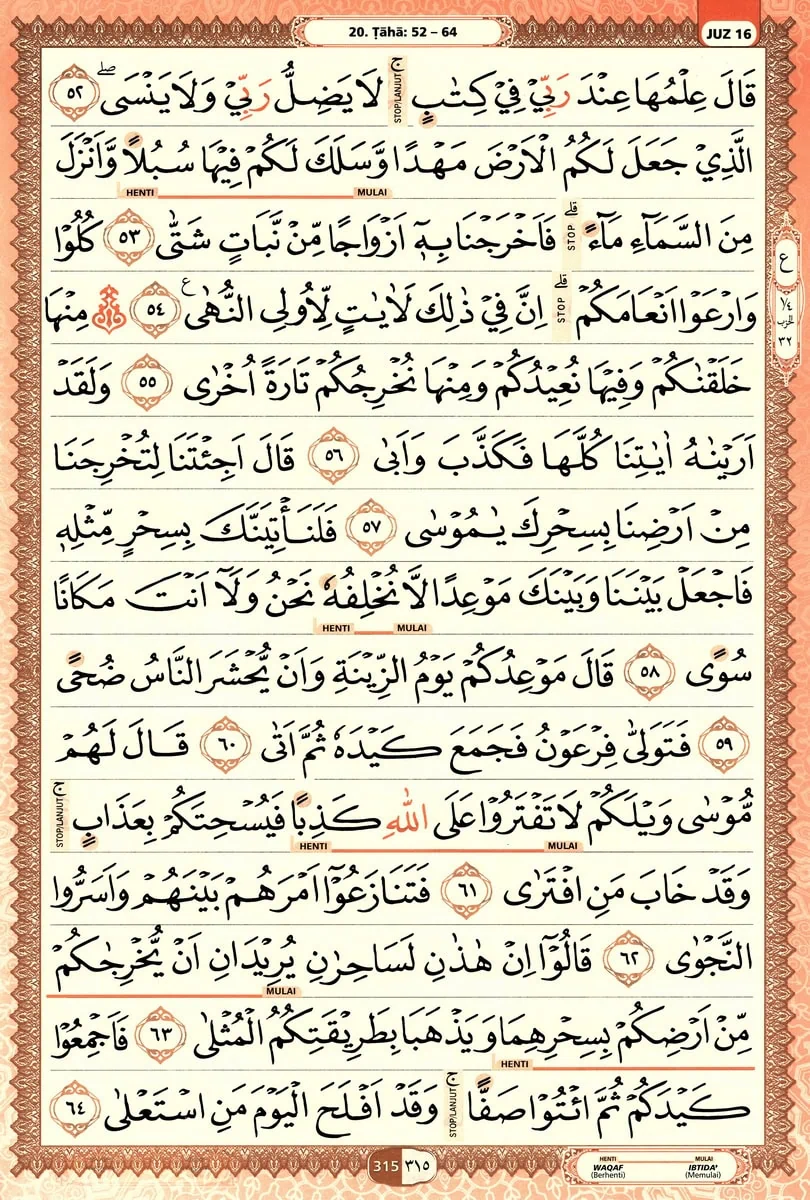 20. Ṭāhā: 52 – 64
JUZ 16
قَالَ عِلْمُهَا عِنْدَ رَبِّيْ فِيْ كِتٰبٍۚ STOP/LANJUT لَا يَضِلُّ رَبِّيْ وَلَا يَنْسَىۖ ٥٢
الَّذِيْ جَعَلَ لَكُمُ الْاَرْضَ مَهْدًا وَّسَلَكَ لَكُمْ فِيْهَا سُبُلًا وَّاَنْزَلَ
MULAI HENTI
مِنَ السَّمَاۤءِ مَاۤءًۗ STOP فَاَخْرَجْنَا بِهٖٓ اَزْوَاجًا مِّنْ نَّبَاتٍ شَتّٰى ٥٣ كُلُوْا
وَارْعَوْا اَنْعَامَكُمْۗ STOP اِنَّ فِيْ ذٰلِكَ لَاٰيٰتٍ لِّاُولِى النُّهٰىࣖ ٥٤ مِنْهَا
ع
١/٤
الحزب
٣٢
خَلَقْنٰكُمْ وَفِيْهَا نُعِيْدُكُمْ وَمِنْهَا نُخْرِجُكُمْ تَارَةً اُخْرٰى ٥٥ وَلَقَدْ
اَرَيْنٰهُ اٰيٰتِنَا كُلَّهَا فَكَذَّبَ وَاَبٰى ٥٦ قَالَ اَجِئْتَنَا لِتُخْرِجَنَا
مِنْ اَرْضِنَا بِسِحْرِكَ يٰمُوْسٰى ٥٧ فَلَنَأْتِيَنَّكَ بِسِحْرٍ مِّثْلِهٖ
فَاجْعَلْ بَيْنَنَا وَبَيْنَكَ مَوْعِدًا لَّا نُخْلِفُهٗ نَحْنُ وَلَآ اَنْتَ مَكَانًا
MULAI HENTI
سُوًى ٥٨ قَالَ مَوْعِدُكُمْ يَوْمُ الزِّيْنَةِ وَاَنْ يُّحْشَرَ النَّاسُ ضُحًى
٥٩ فَتَوَلّٰى فِرْعَوْنُ فَجَمَعَ كَيْدَهٗ ثُمَّ اَتٰى ٦٠ قَالَ لَهُمْ
مُّوْسٰى وَيْلَكُمْ لَا تَفْتَرُوْا عَلَى اللّٰهِ كَذِبًا فَيُسْحِتَكُمْ بِعَذَابٍۚ STOP/LANJUT
MULAI HENTI
وَقَدْ خَابَ مَنِ افْتَرٰى ٦١ فَتَنَازَعُوْٓا اَمْرَهُمْ بَيْنَهُمْ وَاَسَرُّوا
النَّجْوٰى ٦٢ قَالُوْٓا اِنْ هٰذٰنِ لَسٰحِرٰنِ يُرِيْدَانِ اَنْ يُّخْرِجٰكُمْ
MULAI
مِّنْ اَرْضِكُمْ بِسِحْرِهِمَا وَيَذْهَبَا بِطَرِيْقَتِكُمُ الْمُثْلٰى ٦٣ فَاَجْمِعُوْا
HENTI
كَيْدَكُمْ ثُمَّ ائْتُوْا صَفًّاۚ STOP/LANJUT وَقَدْ اَفْلَحَ الْيَوْمَ مَنِ اسْتَعْلٰى ٦٤
315 ٣١٥
HENTI MULAI
WAQAF IBTIDA'
(Berhenti) (Memulai)